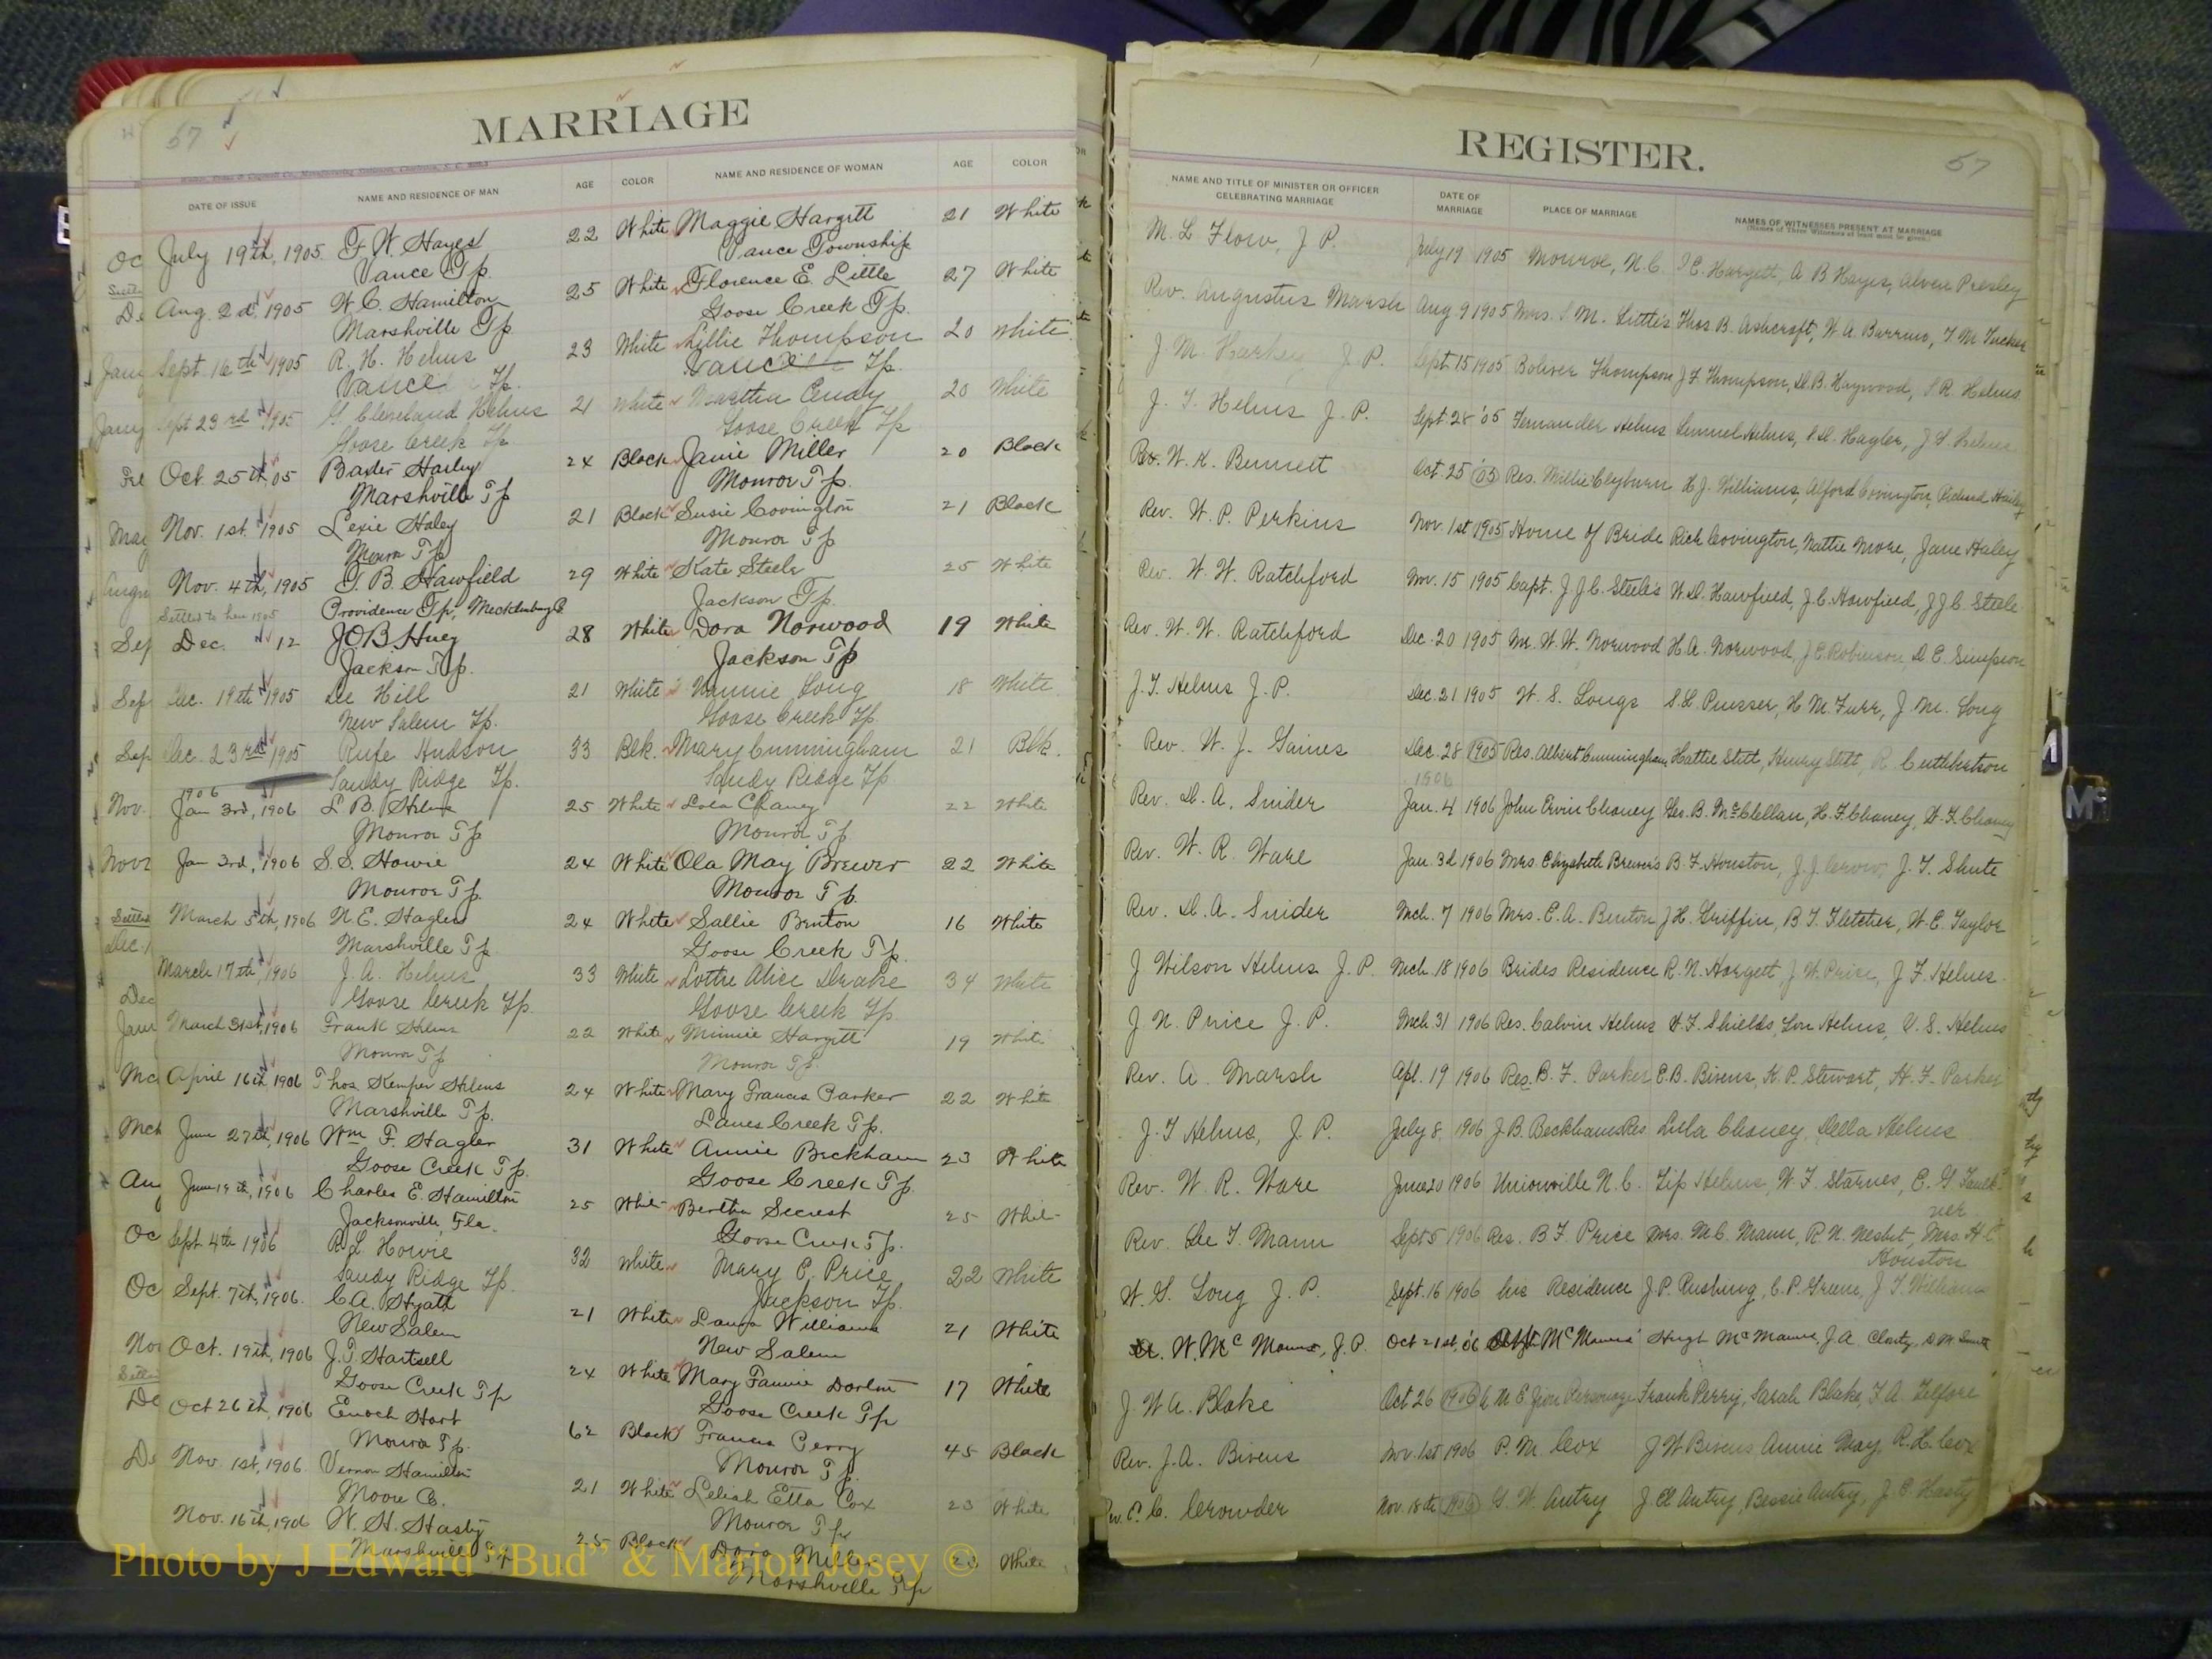 MARRIAGE
57
DATE OF ISSUE NAME AND RESIDENCE OF MAN AGE COLOR NAME AND RESIDENCE OF WOMAN AGE COLOR
July 19th, 1905 F. W. Hayes 22 White Maggie Hargett 21 White
Vance Tp. Vance Township
Aug. 2d, 1905 W. C. Hamilton 25 White Florence E. Little 27 White
Marshville Tp. Goose Creek Tp.
Sept. 16th 1905 R. H. Helms 23 White Lillie Thompson 20 White
Vance Tp. Vance Tp.
Sept 23rd 1905 G. Cleveland Helms 21 White 20 White
Goose Creek Tp. Goose Creek Tp
Oct. 25th, 05 Baxter 24 Black Janie Miller 20 Black
Marshville Tp Monroe Tp.
Nov. 1st. 1905 Lexie Haley 21 Black Susie Covington 21 Black
Monroe Tp Monroe Tp
Nov. 4th, 1905 B. Hawfield 29 White Kate Steele 25 White
Providence Tp, Mecklenburg Jackson Tp.
Settled to here 1905
Dec. " 12 J. O. B. Huey 28 White Dora Norwood 19 White
Jackson Tp. Jackson Tp
Dec. 19th 1905 Lee Hill 21 White Nannie Long 18 White
New Salem Tp. Goose Creek Tp.
Dec. 23rd 1905 Rufe Hudson 33 Blk. Mary Cunningham 21 Blk.
Sandy Ridge Tp. Sandy Ridge Tp
1906
Jan 3rd, 1906 L. B. Helms 25 White Lola Chaney 22 White
Monroe Tp Monroe Tp
Jan 3rd, 1906 S. S. Howie 24 White Ola May Brewer 22 White
Monroe Tp Monroe Tp.
March 5th, 1906 N. E. Hagler 24 White Sallie Benton 16 White
Marshville Tp Goose Creek Tp.
March 17th, 1906 J. A. Helms 33 White Lottie Alice Drake 34 White
Goose Creek Tp. Goose Creek Tp.
March 31st, 1906 Frank Helms 22 White Minnie Hargett 19 White
Monroe Tp Monroe Tp.
April 16th, 1906 Thos. Kemper Helms 24 White Mary Francis Parker 22 White
Marshville Tp. Lanes Creek Tp.
June 27th, 1906 Wm F. Hagler 31 White Annie Beckham 23 White
Goose Creek Tp. Goose Creek Tp.
June 19th, 1906 Charles E. Hamilton 25 White Bertha Secrest 25 White
Jacksonville, Fla. Goose Creek Tp.
Sept. 4th 1906 R. L. Howie 32 White Mary E. Price 22 White
Sandy Ridge Tp. Jackson Tp.
Sept. 7th, 1906. C. A. Hyatt 21 White Laura Williams 21 White
New Salem New Salem
Oct. 19th, 1906 J. T. Hartsell 24 White Mary Fannie 17 White
Goose Creek Tp Goose Creek Tp
Oct 26th, 1906 Enoch Hart 62 Black Francis Perry 45 Black
Monroe Tp. Monroe Tp.
Nov. 1st, 1906 Vernon Hamilton 21 White Leliah Etta Cox 23 White
Moore Co. Monroe Tp
Nov. 16th, 1906 W. H. Hasty 25 Black Dora Miller 23 White
Marshville Tp Marshville Tp
REGISTER.
57
NAME AND TITLE OF MINISTER OR OFFICER CELEBRATING MARRIAGE DATE OF MARRIAGE PLACE OF MARRIAGE NAMES OF WITNESSES PRESENT AT MARRIAGE
(Names of Three Witnesses at least must be given.)
M. L. Flow, J. P. July 19 1905 Monroe, N.C. Hargett, A B Hayes, Presley
Rev. Augustus Marsh Aug 9 1905 Mrs. S. M. Little's Thos. B. Ashcroft, W. A. Barrino, T. M. Tucker
J. M. Harkey J. P. Sept. 15 1905 Boliver Thompson J F. Thompson, Haywood, Helms
J. T. Helms J. P. Sept. 28 '05 Fernander Helms Lemuel Helms, Hagler,
Rev. W. K. Bennett Oct 25 '05 Res. Millie Clyburn H. J. Williams, Alford Covington, Richard
Rev. W. P. Perkins Nov. 1st 1905 Home of Bride Rich Covington, Mattie More, Jane Haley
Rev. W. W. Ratchford Nov. 15 1905 Capt. J. J. C. Steele's W. D. Hawfield, J. C. Hawfield, J J C. Steele
Rev. W. W. Ratchford Dec. 20 1905 Mr. W. W. Norwood H. A. Norwood, J C Robinson D. E. Simpson
J. T. Helms J. P. Dec. 21 1905 W. S. Longs S. L. Presser, H. M. Furr, J. M. Long
Rev. W. J. Gaines Dec. 28 1905 Res. Albert Cunningham Hattie Stitt, Henry Stitt, R. Cuthbertson
1906
Rev. D. A. Snider Jan. 4 1906 John Ervin Chaney Geo. B. McClellan, H. F. Chaney, W. F. Chaney
Rev. W. R. Ware Jan. 3d 1906 Mrs. Elizabeth Brewer's B. F. Houston, J. J. Crow, J. T. Shute
Rev. D. A. Snider Mch. 7 1906 Mrs. E. A. Benton J H. Griffin, B. T. Fletcher, W. E. Taylor
J Wilson Helms J. P. Mch. 18 1906 Brides Residence R. N. Hargett J. W. Price, J. F. Helms
J. N. Price J. P. Mch. 31 1906 Res. Calvin Helms W. F. Shields, Lon Helms, V. S. Helms
Rev. A. Marsh Apl. 19 1906 Res. B. F. Parker E. B. Bivens, K. P. Stewart, H. F. Parker
J. T Helms, J. P. July 8, 1906 J. B. Beckhams Res Lula Chaney, Della Helms
Rev. W. R. Ware June 20 1906 Unionville N. C. Zip Helms, W. F. Starnes, E. G. Faulk-
ner
Rev. Lee T. Mann Sept 5 1906 Res. B F. Price Mrs. M. C. Mann, R. N. Nesbit, Mrs. H. C.
Houston
W. S. Long J. P. Sept. 16 1906 his Residence J. P. Rushing, C. P. Greene, J T. Williams
W. McManus, J. P. Oct 21st, '06 McManus Hugh McManus, J. A.
J. W A. Blake Oct 26 1906 A M E Zion Parsonage Frank Perry, Sarah Blake, F. A. Telfore
Rev. J. A. Bivens Nov. 1st 1906 P. M. Cox J W Bivens Annie May, R. H. Cox
Rev. E. C. Crowder Nov. 18th 1906 G. W. Autry Autry, Bessie Autry, J. C. Hasty
Photo by J Edward “Bud” & Marion Josey ©